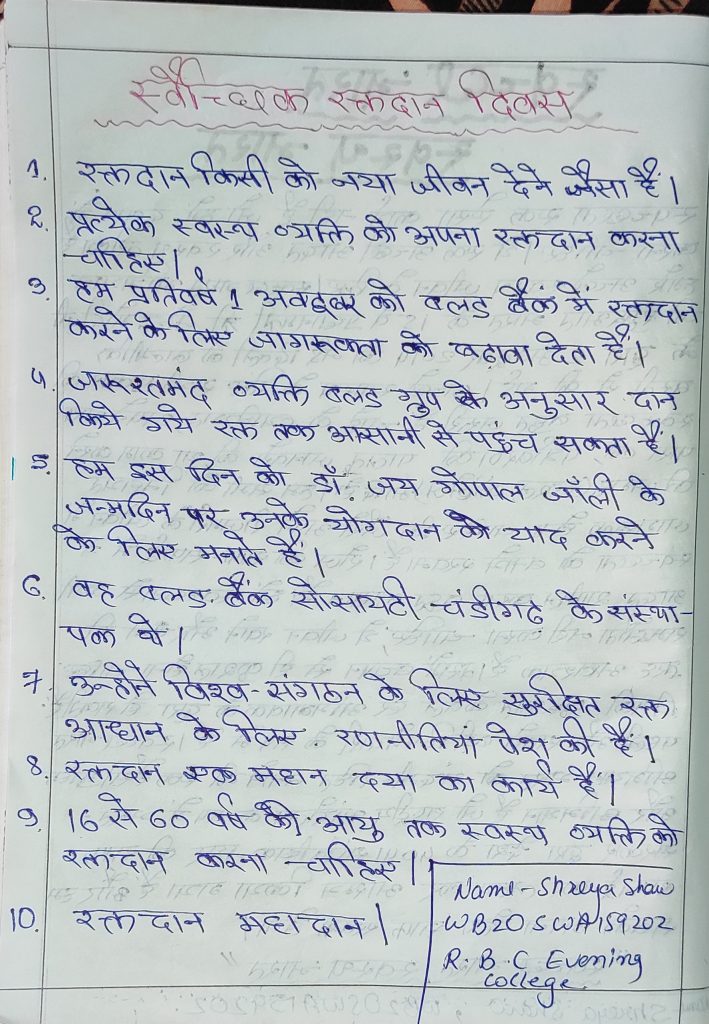 स्वैच्छिक रक्तदान दिवस
1. रक्तदान किसी को नया जीवन देने जैसा है।
2. प्रत्येक स्वस्थ व्यक्ति को अपना रक्तदान करना
चाहिए।
3. हम प्रतिवर्ष 1 अक्टूबर को बलड बैंक में रक्तदान
करने के लिए जागरूकता को बढ़ावा देता है।
4. जरूरतमंद व्यक्ति बलड ग्रुप के अनुसार दान
किये गये रक्त तक आसानी से पहुंच सकता है।
5. हम इस दिन को डॉ. जय गोपाल जॉली के
जन्मदिन पर उनके योगदान को याद करने
के लिए मनाते हैं।
6. वह बलड बैंक सोसायटी चंडीगढ के संस्था-
पक थे।
7. उन्होने विश्व-संगठन के लिए सुरक्षित रक्त
आधान के लिए रणनीतियां पेश की है।
8. रक्तदान एक महान दया का कार्य है।
9. 16 से 60 वर्ष की आयु तक स्वस्थ व्यक्ति को
रक्तदान करना चाहिए।
10. रक्तदान महादान।
Name - Shreya Shaw
WB20SWA159202
R.B.C Evening
College.